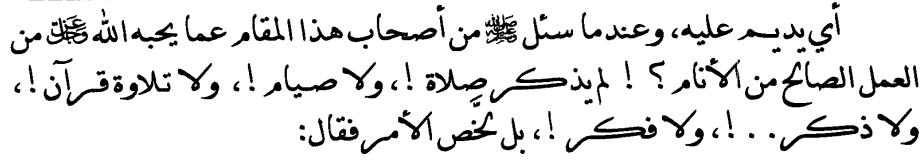 أي يديم عليه، وعندما سئل ﷺ من أصحاب هذا المقام عما يحبه الله ﷻ من
العمل الصالح من الأنام؟ ! لم يذكر صلاة !، ولا صيام !، ولا تلاوة قرآن !،
ولا ذكر . . !، ولا فكر !، بل لخَّص الأمر فقال: